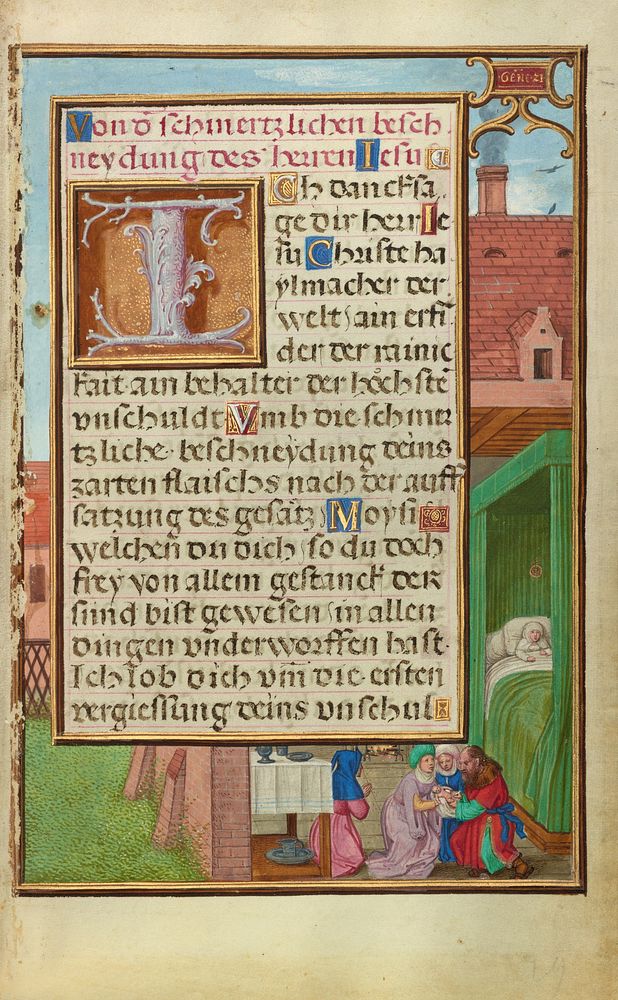 Genes. 21
Von d̄ schmertzlichen besch
neydung des herren Iesu
Ich dancksa
ge dir herr Ie
su Christe ha
ylmacher der
welt, ain erfi
der der rainic
kait ain behalter der höchstē
vnschuldt Vmb die schmer
tzliche beschneydung deins
zarten flaischs nach der auff
satzung des gesatz Moysi
welchen du dich, so du doch
frey von allem gestanck der
sund bist gewesen, in allen
dingen vnderworffen hast.
Ich lob dich vm̄ die ersten
vergiessung deins vnschul